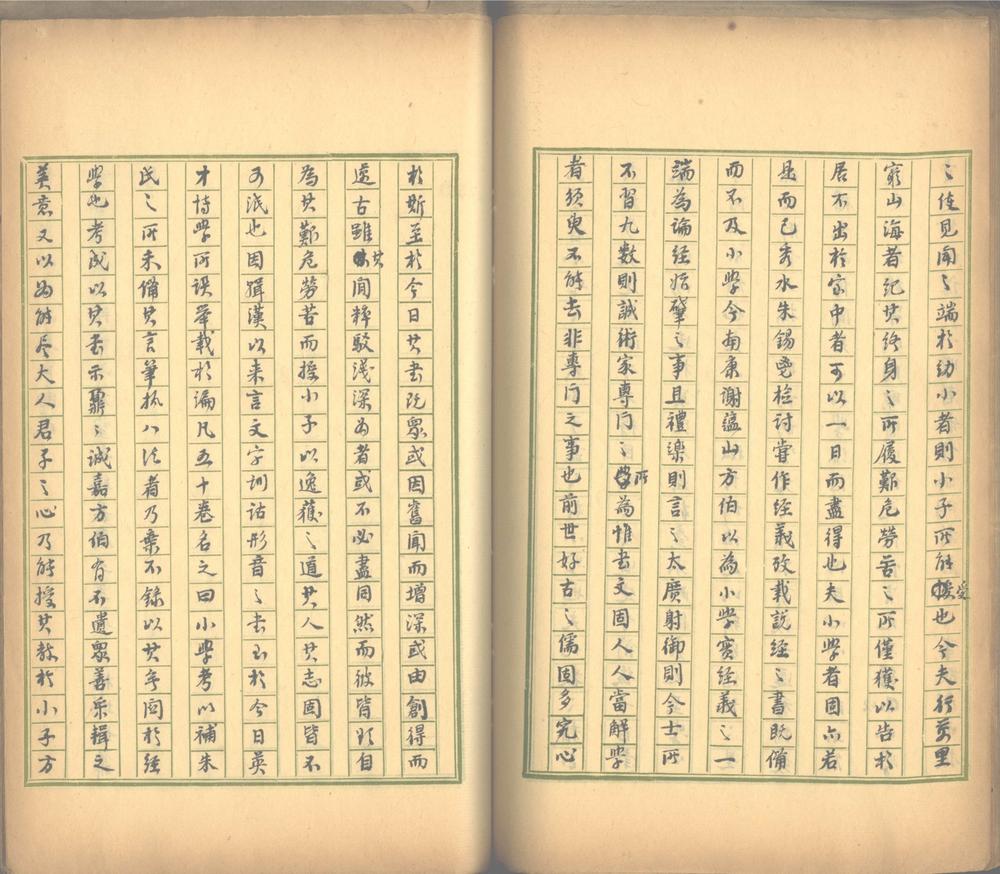 之使見聞之端於幼小者則小子所能受也今夫行萬里
窮山海者紀其終身之所履艱危勞苦之所僅獲以告於
居不出於室中者可以一日而盡得也夫小學者固亦若
是而已秀水朱錫鬯檢討嘗作經義攷載說經之書既備
而不及小學今南康謝蘊山方伯以為小學實經義之一
端為論經始肇之事且禮樂則言之太廣射御則今士所
不習九數則誠術家專門之所為惟書文固人人當解學
者須臾不能去非專門之事也前世好古之儒固多究心
於斯至於今日其書既眾或因舊聞而增深或由創得而
古雖其間粹駁淺深為者或不必盡同然而彼皆自
為其艱危勞苦而授小子以逸獲之道其人其志固皆不
可泯也因緝漢以來言文字訓詁形音之書至於今日英
才博學所譔舉載於編凡五十卷名之曰小學考以補朱
氏之所未備其言筆勢八法者乃棄不錄以其無關於經
學也考成以其書示鼐〻誠嘉方伯有不遺眾善樂輯之
美意又以為能盡大人君子之心乃能授其教於小子方